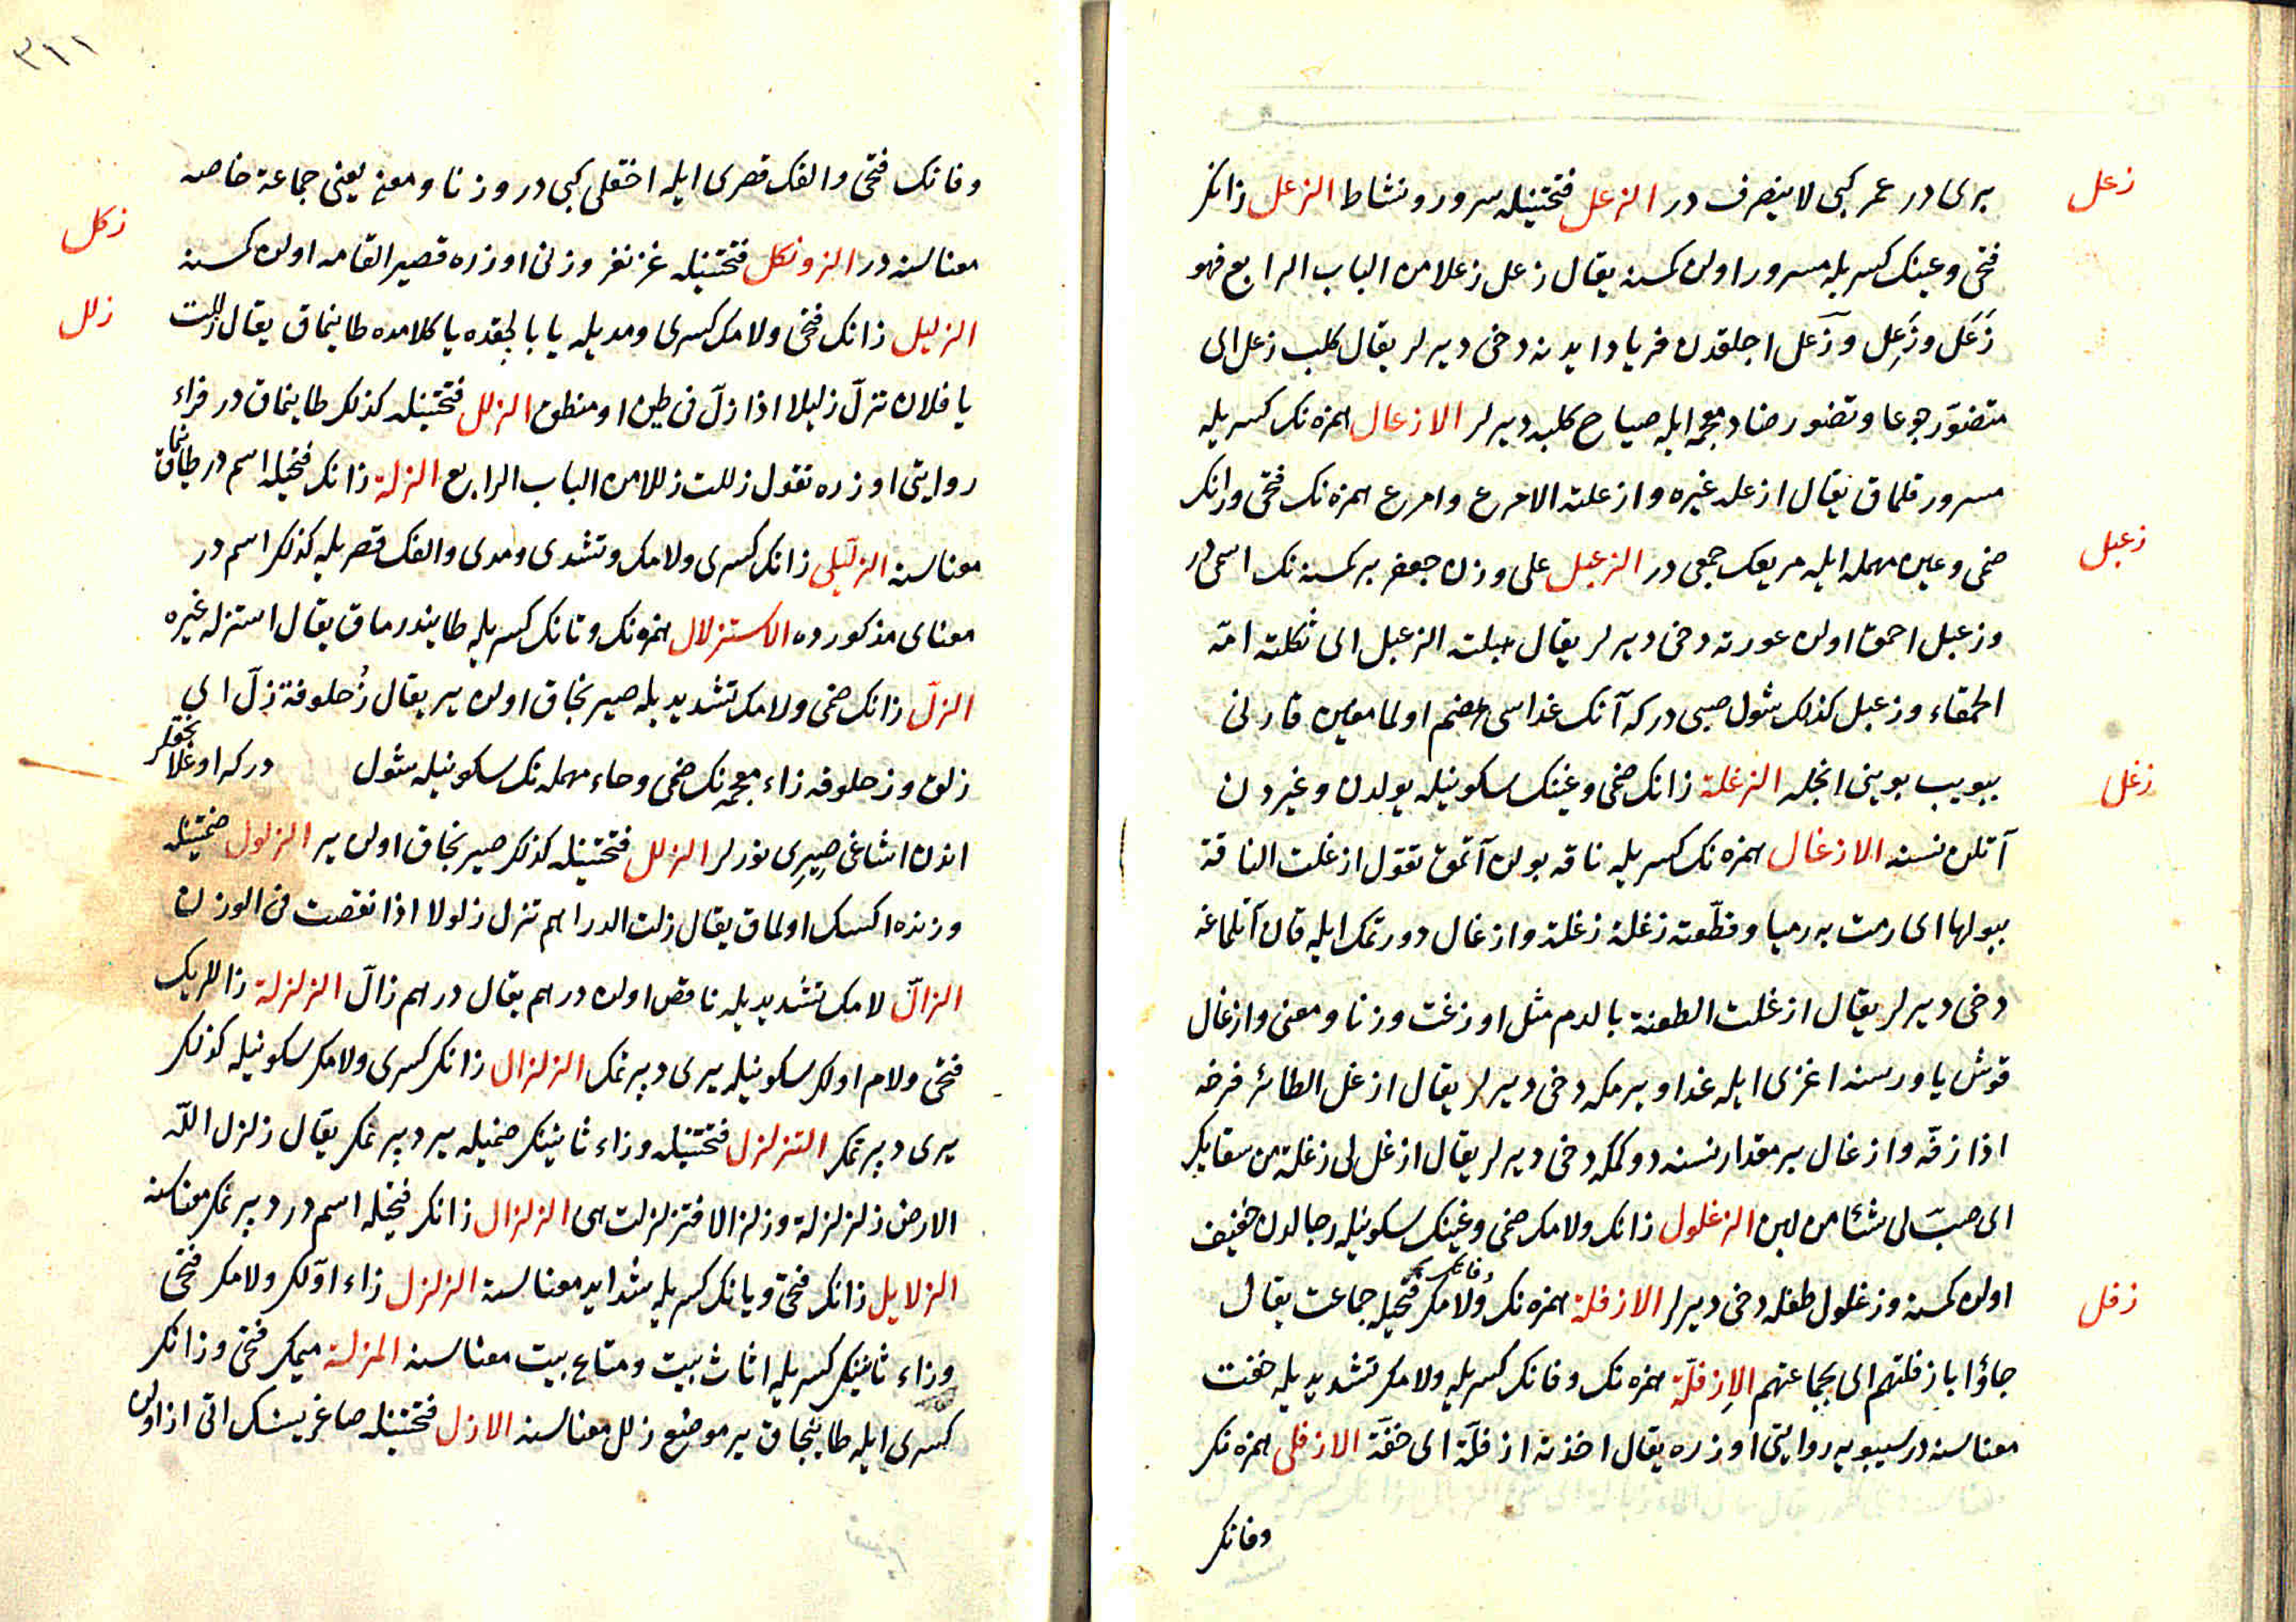 زعل
بری در عمر کبی لا ینصرف در الزعل فتحتینله سرور و نشاط الزعل زانک
فتحی و عینک کسریله مسرور اولن کمسنه یقال زعل زعلا من الباب الرابع فهو
زَعَل وزَعِل وزعل اجلقدن فریاد ایدنه دخی دیرلر یقال کلب زعل ای
متضوّر جوعا وتضور ضاد معجمه ایله صیاح کلبه دیرلر الازعال همزه نک کسریله
مسرور قلماق یقال ازعله غیره وازعلته الامرع وامرع همزه نک فتحی ورانک
ضمی وعین مهمله ایله مریعک جمعی در الزعبل علی وزن جعفر بر کمسنه نک اسمی در
زعبل
وزعبل احمق اولن عورته دخی دیرلر یقال هبلته الزعبل ای ثکلته امه
الحمقاء وزعبل کذلک شول صبی در که آنک غداسی هضم اولمامغین قارنی
بیویب بوینی انجله الزغلة زانک ضمی وغینک سکونیله بولدن وغیردن
زغل
آتلن نسنه الازغال همزه نک کسریله ناقه بولن آتمق تقول ازغلت الناقة
ببولها ای رمت به رمیا وقطّعته زغلة زغلة وازغال دورتمک ایله قان آتلماغه
دخی دیرلر یقال ازغلت الطعنة بالدم مثل اوزغت وزنا ومعنی وازغال
قوش یاورسنه اغزی ایله غدا ویرمکه دخی دیرلر یقال ازغل الطائر فرخه
اذا زقّه وازغال بر مقدار نسنه دوکمکه دخی دیرلر یقال ازغل لی زغلة من سقایک
ای صبّ لی شئا من لبن الزغلول زانک ولامک ضمی وغینک سکونیله رجالدن خفیف
اولن کمسنه وزغلول طفله دخی دیرلر الازفلة همزه نک وفانک ولامک فتحیله جماعت یقال
زفل
جاؤا بازفلتهم ای بجماعتهم الاِزفلّة همزه نک وفانک کسریله ولامک تشدیدیله خفت
معناسنه در سیبویه روایتی اوزره یقال اخذته ازفلّة ای خفّة الازفلی همزه نک
وفانک
٣١١
وفانک فتحی والفک قصری ایله اخقلی کبی در وزنا ومعنی یعنی جماعة خاصه
زکل
معناسنه در الزونکل فتحتینله غزنفر وزنی اوزره قصیر القامه اولن کمسنه
زلل
الزلیل زانک فتحی ولامک کسری ومدیله یا بالجقده یا کلامده طاینماق یقال زللت
یا فلان تزلّ زلیلا اذا زلّ فی طین او منطق الزلل فتحتینله کذلک طاینماق در فراء
روایتی اوزره تقول زللت زللا من الباب الرابع الزلة زانک فتحیله اسم در طاینماق
معناسنه الزلّیلی زانک کسری ولامک وتشدی ومدی والفک قصریله کذلک اسم در
معنای مذکورده الاستزلال همزه نک وتانک کسریله طایندرماق یقال استزله غیره
الزلّ زانک ضمی ولامک تشدیدیله صیرنجاق اولن یر یقال زُحلوفة زلّ ای
زلق وزحلوفه زاء معجمه نک ضمی وحاء مهمله نک سکونیله شول در که اوغلانجقلر
اندن اشاغی صیری نورلر الزلل فتحتینله کذلک صیرنجاق اولن یر الزلول ضمتینله
وزنده اکسک اولماق یقال زلت الدراهم تزل زلولا اذا نقصت فی الوزن
الزالّ لامک تشدیدیله ناقص اولن درهم یقال درهم زالّ الزلزلة زالریک
فتحی ولام اولک سکونیله یری دپرتمک الزلزال زانک کسری ولامک سکونیله کذلک
یری دپرتمک التزلزل فتحتینله وزاء ثانینک ضمیله یر دپرنمک یقال زلزل الله
الارض زلزلة وزلزالا فتزلزلت هی الزلزال زانک فتحیله اسم در دپرنمک معناسنه
الزلایل زانک فتحی ویانک کسریله شداید معناسنه الزلزل زاء اولک ولامک فتحی
وزاء ثانینک کسریله اثاث بیت ومتاع بیت معناسنه المزلة میمک فتحی وزانک
کسری ایله طاینجاق یر موضع زلل معناسنه الازل فتحتینله صاغریسنک اتی از اولن